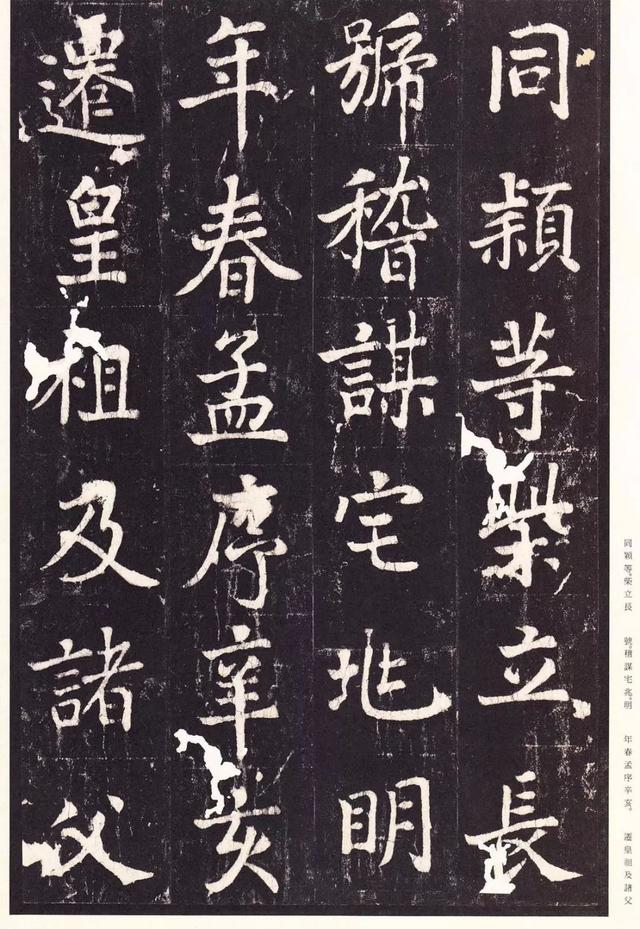 同穎等柴立長
號稽謀宅兆明
年春孟序辛亥
遷皇祖及諸父
同穎等柴立長 號稽謀宅兆明 年春孟序辛亥 遷皇祖及諸父